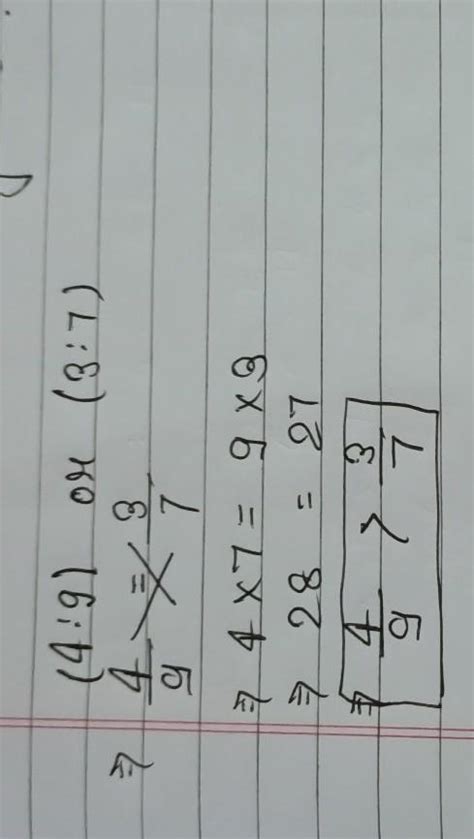 (4:9) or (3:7)
⇒ 4/9 = 3/7
⇒ 4 x 7 = 9 x 3
⇒ 28 = 27
⇒ 4/9 > 3/7